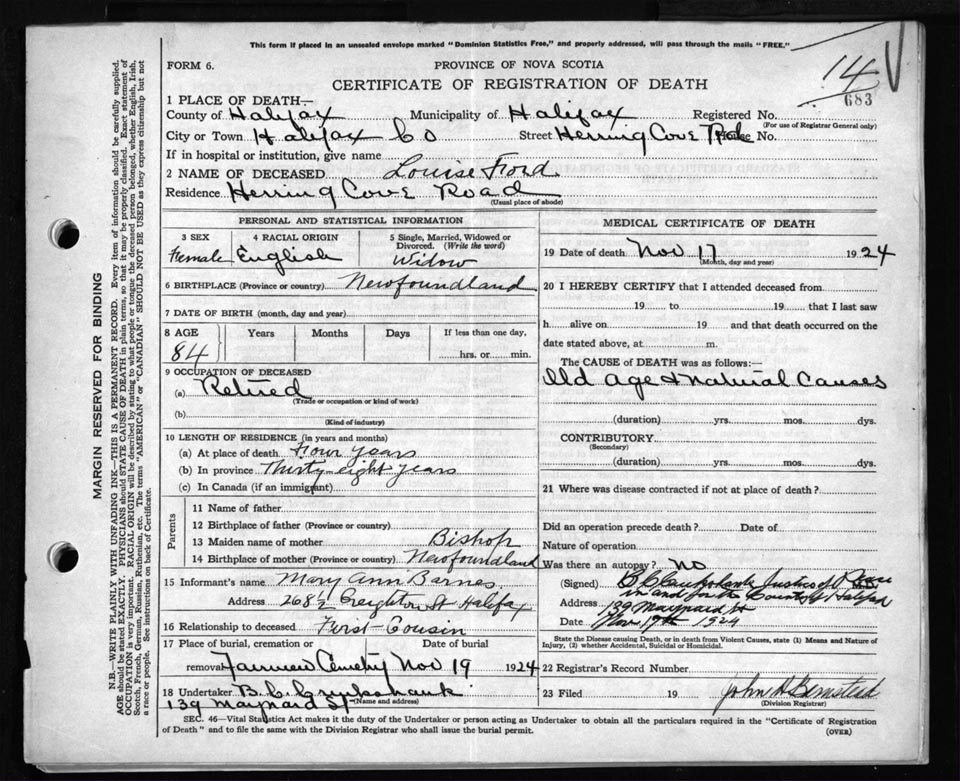 This form if placed in an unsealed envelope marked "Dominion Statistics Free," and properly addressed, will pass through the mails "FREE."
FORM 6.
PROVINCE OF NOVA SCOTIA
CERTIFICATE OF REGISTRATION OF DEATH
14
683
1 PLACE OF DEATH—
County of Halifax Municipality of Halifax Registered No.
(For use of Registrar General only)
City or Town Halifax Co Street Herring Cove Rd House No.
If in hospital or institution, give name
2 NAME OF DECEASED Louise Ford
Residence Herring Cove Road
(Usual place of abode)
PERSONAL AND STATISTICAL INFORMATION
3 SEX
Female
4 RACIAL ORIGIN
English
5 Single, Married, Widowed or Divorced. (Write the word)
Widow
6 BIRTHPLACE (Province or country) Newfoundland
7 DATE OF BIRTH (month, day and year)
8 AGE Years Months Days If less than one day,
84 hrs. or min.
9 OCCUPATION OF DECEASED
(a) Retired
(Trade or occupation or kind of work)
(b)
(Kind of industry)
10 LENGTH OF RESIDENCE (in years and months)
(a) At place of death Four years
(b) In province Thirty-eight years
(c) In Canada (if an immigrant)
Parents
11 Name of father
12 Birthplace of father (Province or country)
13 Maiden name of mother Bishop
14 Birthplace of mother (Province or country) Newfoundland
15 Informant's name Mary Ann Barnes
Address 268½ Creighton St Halifax
16 Relationship to deceased First-Cousin
17 Place of burial, cremation or Date of burial
removal Fairview Cemetry Nov 19 1924
18 Undertaker B. C. Cruikshank
(Name and address)
139 Maynard St
MEDICAL CERTIFICATE OF DEATH
19 Date of death Nov 17 1924
(Month, day and year)
20 I HEREBY CERTIFY that I attended deceased from
19 to 19 that I last saw
h alive on 19 and that death occurred on the
date stated above, at m.
The CAUSE of DEATH was as follows:—
Old age & natural Causes
(duration) yrs. mos. dys.
CONTRIBUTORY
(Secondary)
(duration) yrs. mos. dys.
21 Where was disease contracted if not at place of death?
Did an operation precede death? Date of
Nature of operation
Was there an autopsy? NO
(Signed) B C Cruikshank Justice of Peace M.D.
in and for the County of Halifax
Address 139 Maynard St
Date Nov 19th 1924
State the Disease causing Death, or in death from Violent Causes, state (1) Means and Nature of Injury, (2) whether Accidental, Suicidal or Homicidal.
22 Registrar's Record Number
23 Filed 19 John
(Division Registrar)
SEC. 46—Vital Statistics Act makes it the duty of the Undertaker or person acting as Undertaker to obtain all the particulars required in the "Certificate of Registration
of Death" and to file the same with the Division Registrar who shall issue the burial permit.
(OVER)
MARGIN RESERVED FOR BINDING
N.B.—WRITE PLAINLY WITH UNFADING INK—THIS IS A PERMANENT RECORD. Every item of information should be carefully supplied.
AGE should be stated EXACTLY. PHYSICIANS should STATE CAUSE OF DEATH in plain terms, so that it may be properly classified. Exact statement of
OCCUPATION is very important. RACIAL ORIGIN will be described by stating to what people or tongue the deceased person belonged, whether English, Irish,
Scotch, French, German, Russian, Ruthenian, etc. The terms "AMERICAN" or "CANADIAN" SHOULD NOT BE USED as they express citizenship but not
a race or people. See instructions on back of Certificate.